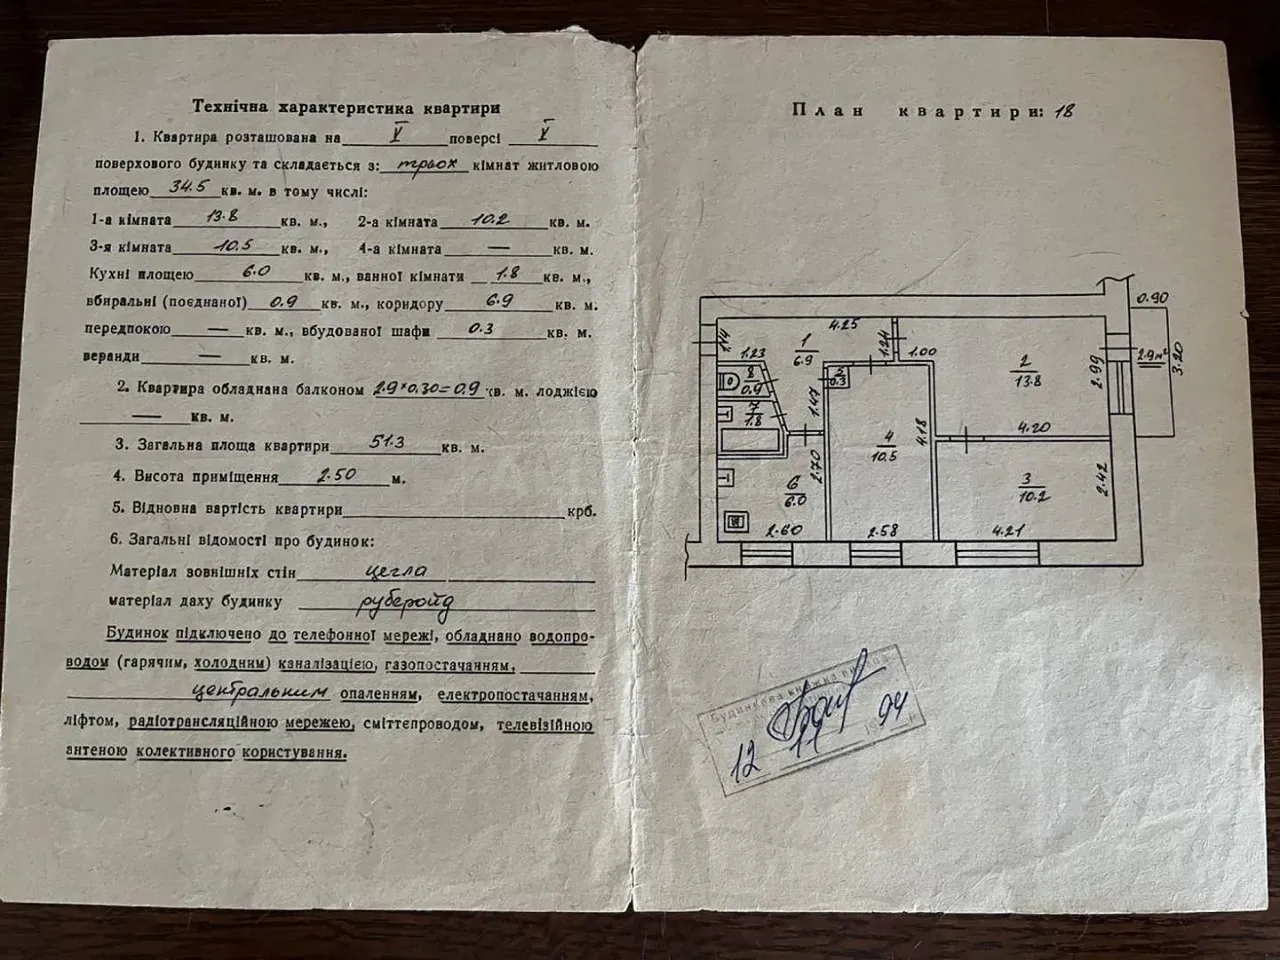 Технічна характеристика квартири
1. Квартира розташована на V поверсі V
поверхового будинку та складається з: трьох кімнат житловою
площею 34.5 кв. м. в тому числі:
1-а кімната 13.8 кв. м., 2-а кімната 10.2 кв. м.
3-я кімната 10.5 кв. м., 4-а кімната — кв. м.
Кухні площею 6.0 кв. м., ванної кімнати 1.8 кв. м.,
вбиральні (поєднаної) 0.9 кв. м., коридору 6.9 кв. м.
передпокою — кв. м., вбудованої шафи 0.3 кв. м.
веранди — кв. м.
2. Квартира обладнана балконом 2.9*0.30=0.9 кв. м. лоджією
— кв. м.
3. Загальна площа квартири 51.3 кв. м.
4. Висота приміщення 2.50 м.
5. Відновна вартість квартири крб.
6. Загальні відомості про будинок:
Матеріал зовнішніх стін цегла
матеріал даху будинку руберойд
Будинок підключено до телефонної мережі, обладнано водопро-
водом (гарячим, холодним) каналізацією, газопостачанням,
центральним опаленням, електропостачанням,
ліфтом, радіотрансляційною мережею, сміттєпроводом, телевізійною
антеною колективного користування.
План квартири: 18
0.90
4.25
1.14
1.24
1.00
1
6.9
2
13.8
2.99
2.9 м²
3.20
1.23
8
0.9
5
0.3
7
1.8
1.47
4
10.5
4.18
4.20
6
6.0
2.70
3
10.2
2.42
2.60
2.58
4.21
Будинкова книжка
12 11 1994